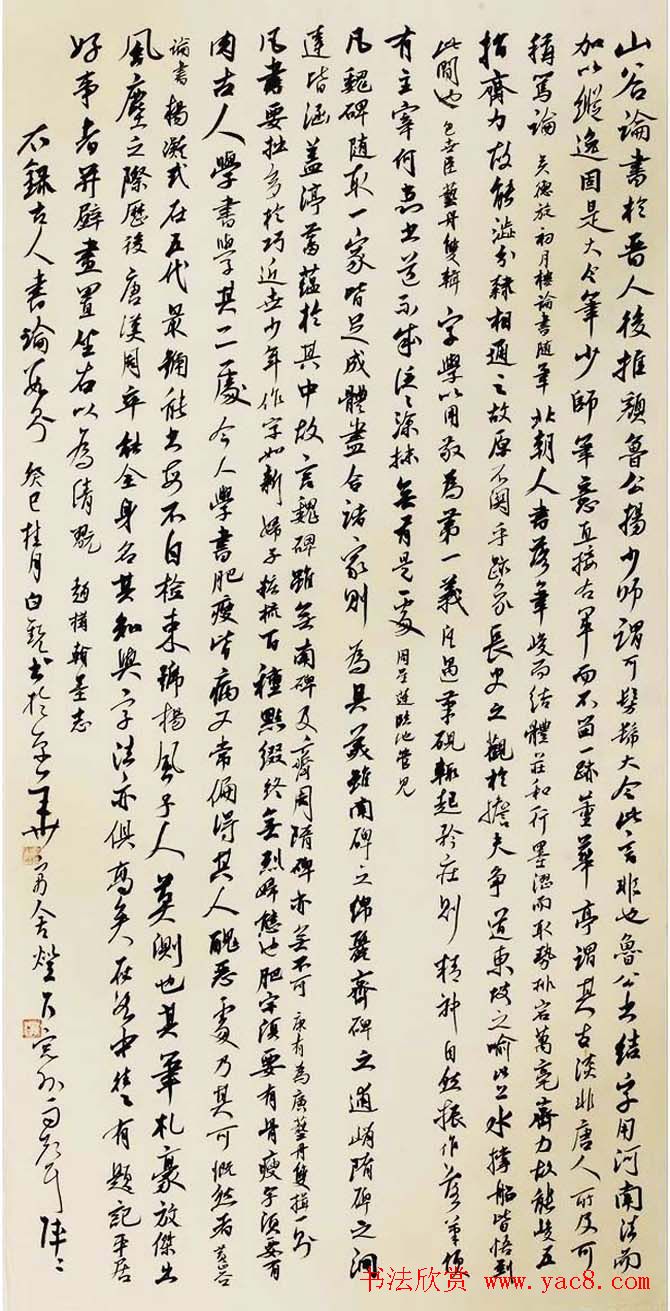 山谷論書於晉人後推顏魯公楊少師謂可髣髴大令此言非也魯公書結字用河南法而
加以縱逸固是大令筆少師筆意直接右軍而不留一跡董華亭謂其古淡非唐人所及可
稱篤論 吳德旋初月樓論書隨筆 北朝人書落筆峻而結體莊和行墨澀而取勢排宕萬毫齊力故能峻五
指齊力故能澀分隸相通之故原不關乎跡象長史之觀於擔夫爭道東坡之喻以上水撐船皆悟到
此間也 包世臣藝舟雙輯 字學以用敬為第一義凡遇筆硯輒起矜莊則精神自然振作落筆便
有主宰何患書道不成泛泛塗抹無有是處 周星蓮臨池管見
凡魏碑隨取一家皆足成體盡合諸家則為具美雖南碑之綿麗齊碑之逋峭隋碑之洞
達皆涵蓋渟蓄蘊於其中故言魏碑雖無南碑及齊周隋碑亦無不可 康有為廣藝舟雙揖一則
凡書要拙多於巧近世少年作字如新婦子妝梳百種點綴終無烈婦態也肥字須要有骨瘦字須要有
肉古人學書學其二處今人學書肥瘦皆病又常偏得其人醜惡處乃其可慨然者 黃山谷
論書 楊凝式在五代最號能書每不自檢束號楊風子人莫測也其筆札豪放傑出
風塵之際歷後唐漢周卒能全身名其知與字法亦俱高矣在洛中往往有題記平居
好事者并壁畫置坐右以為清玩 趙構翰墨志
右錄古人書論若則 癸巳桂月白銳書於京華